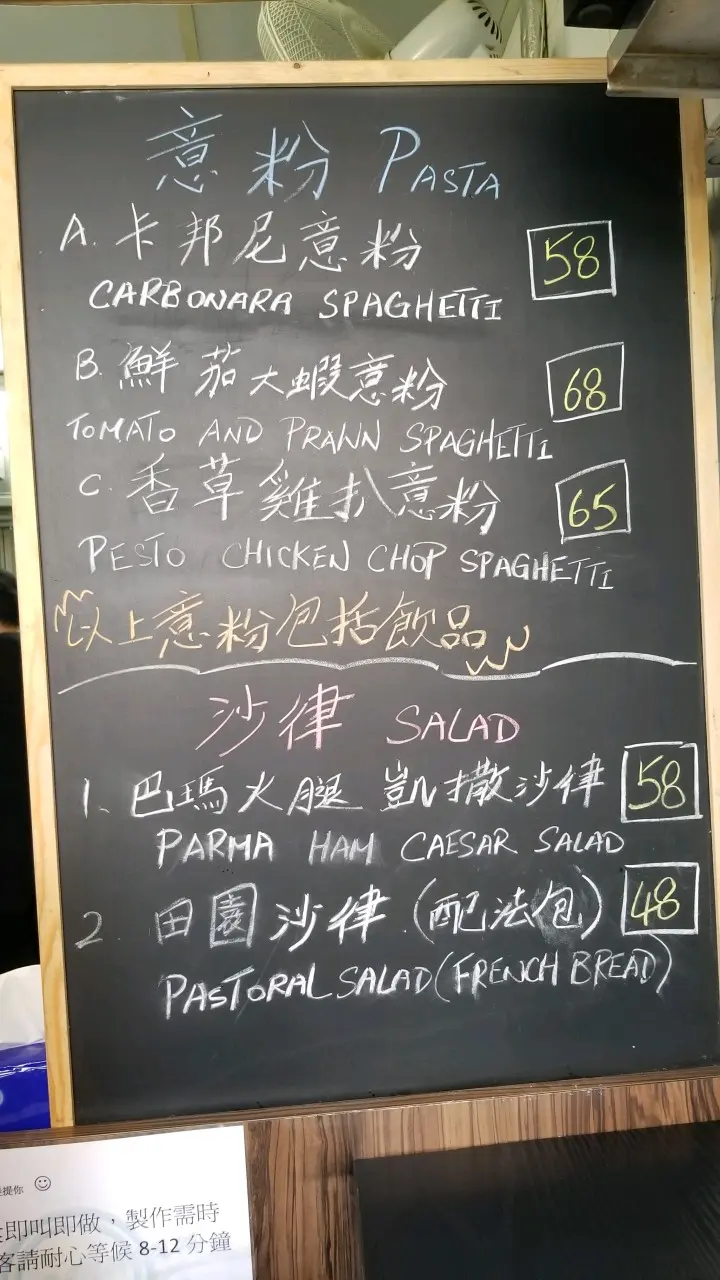 意粉 PASTA
A. 卡邦尼意粉 58
CARBONARA SPAGHETTI
B. 鮮茄大蝦意粉 68
TOMATO AND PRAWN SPAGHETTI
C. 香草雞扒意粉 65
PESTO CHICKEN CHOP SPAGHETTI
以上意粉包括飲品
沙律 SALAD
1、巴瑪火腿 凱撒沙律 58
PARMA HAM CAESAR SALAD
2. 田園沙律.(配法包) 48
PASTORAL SALAD (FRENCH BREAD)
提你 ☺
即叫即做，製作需時
客請耐心等候 8-12 分鐘